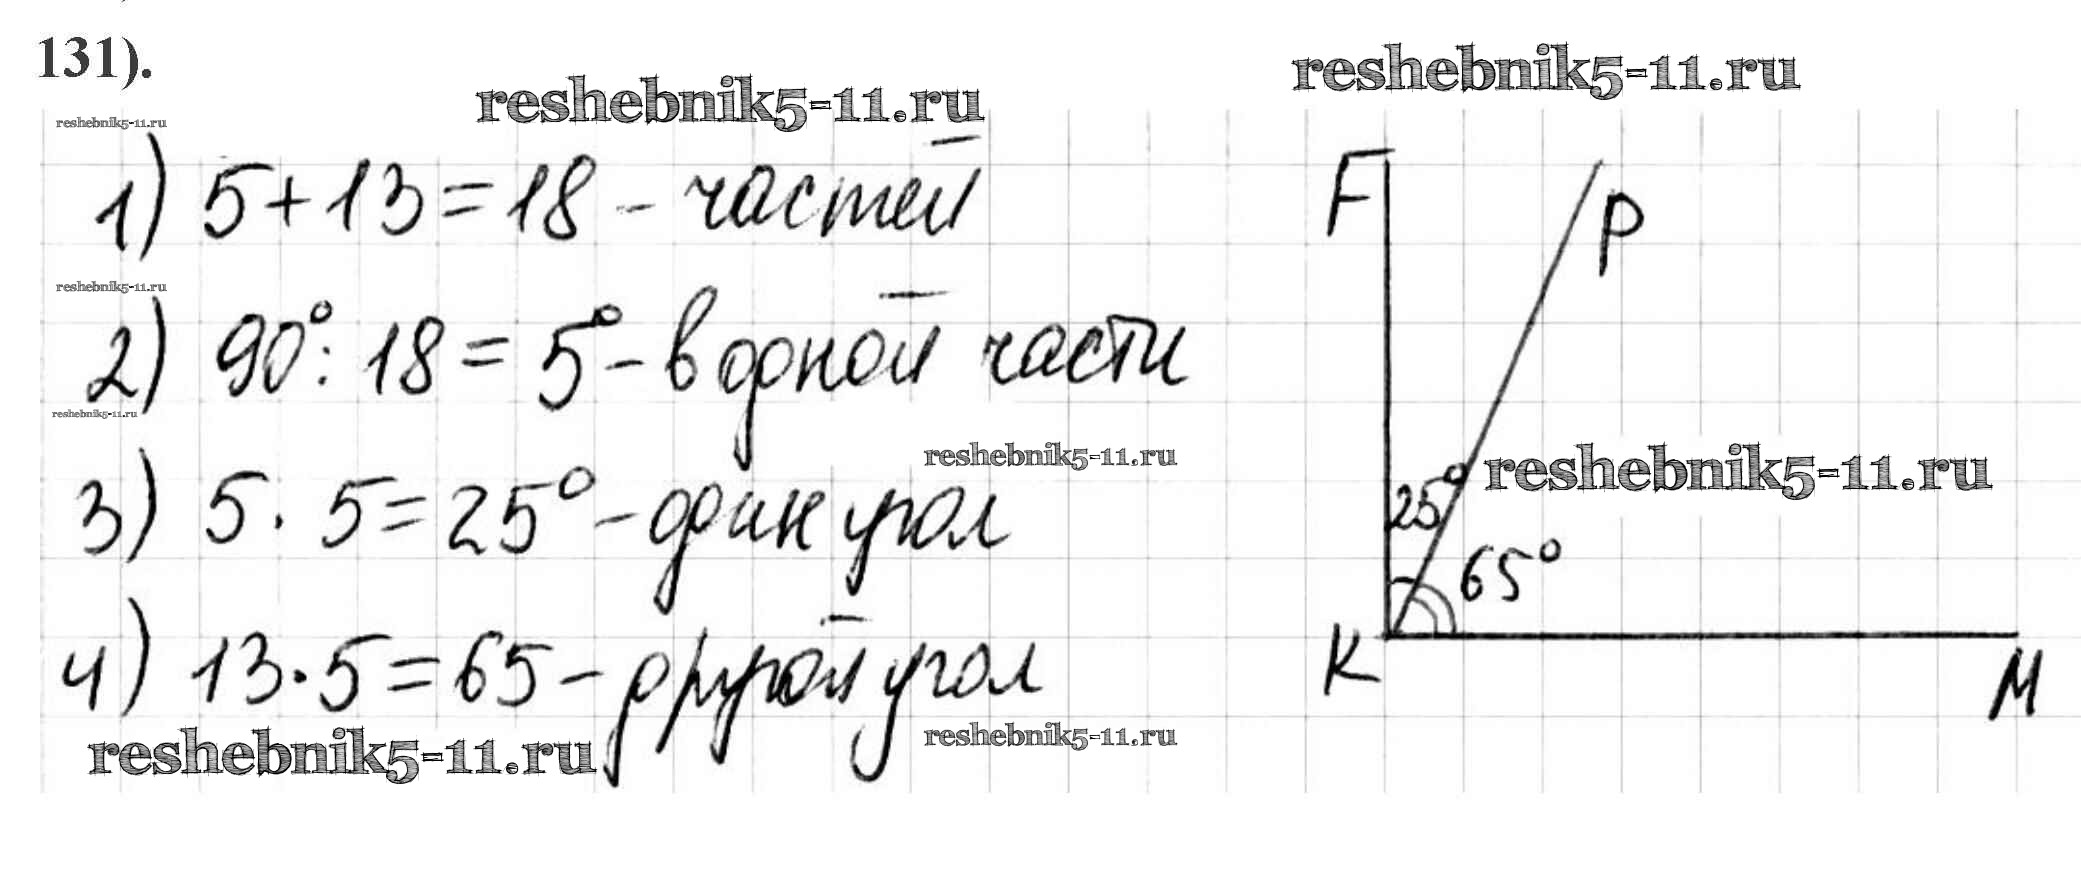 131).
reshebnik5-11.ru
reshebnik5-11.ru
reshebnik5-11.ru
1) 5+13=18 - частей
reshebnik5-11.ru
2) 90°: 18 = 5° - в одной части
reshebnik5-11.ru
reshebnik5-11.ru
3) 5 · 5 = 25° - один угол
4) 13 · 5 = 65 - другой угол
reshebnik5-11.ru
reshebnik5-11.ru
F
P
reshebnik5-11.ru
25°
65°
K
M